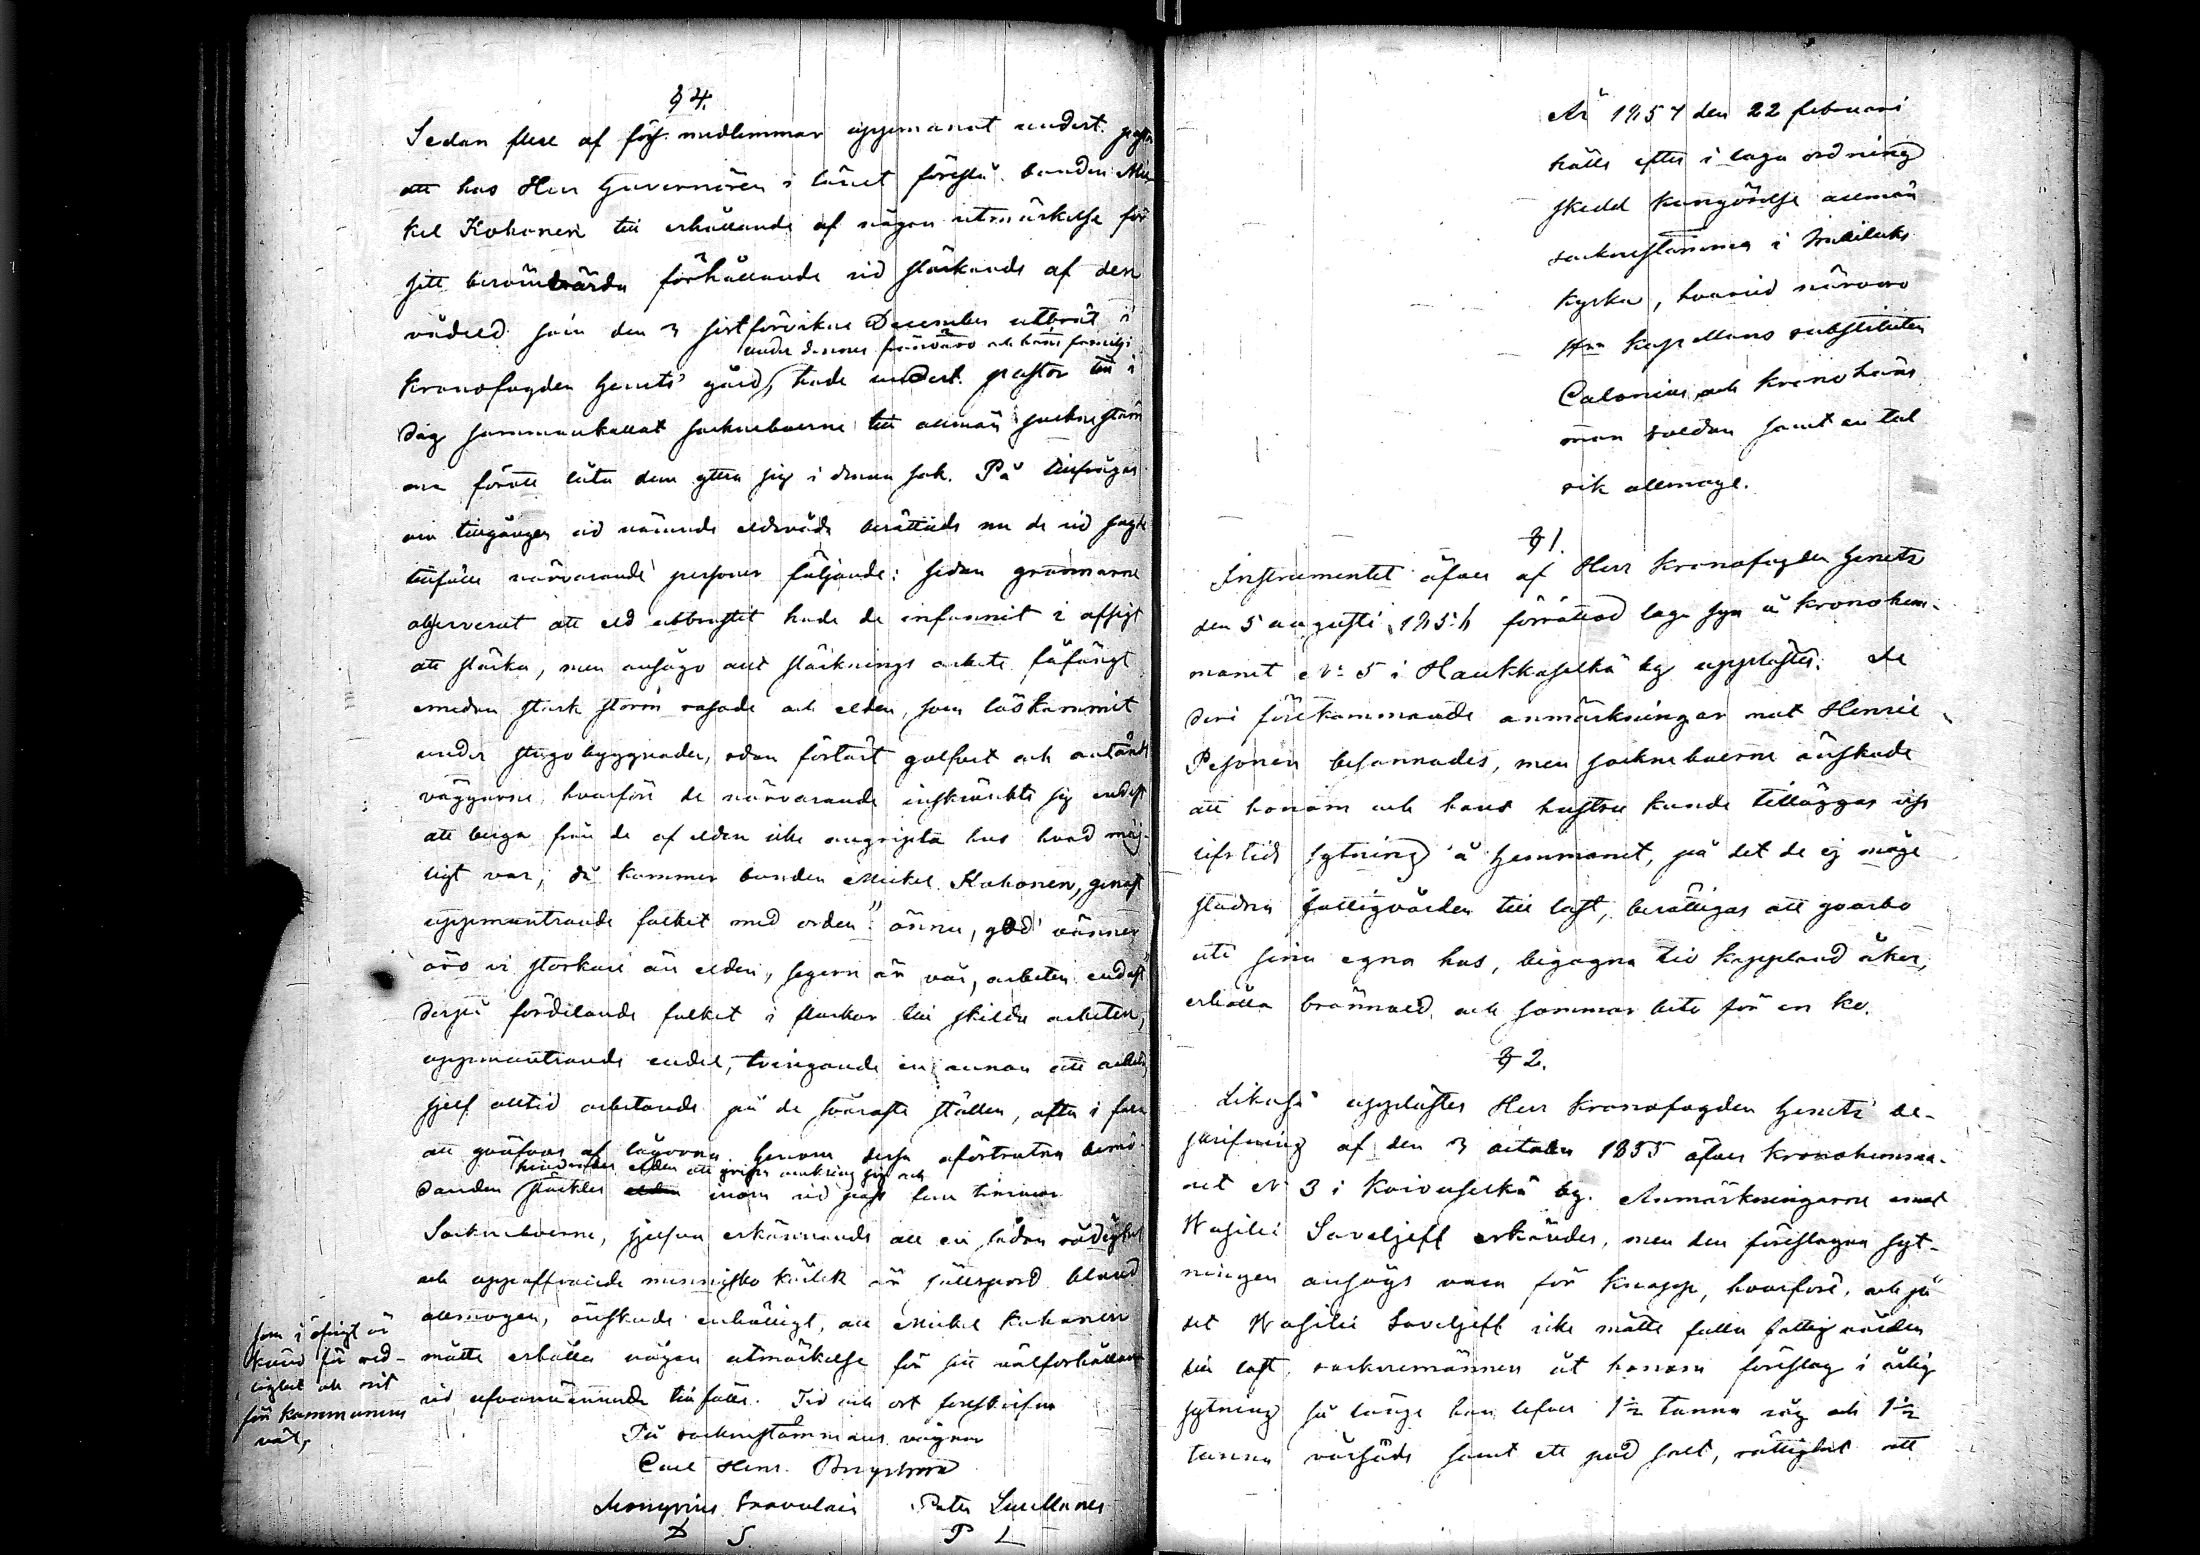 § 4.
Sedan flere af förs. medlemmar uppmanat undert. pastor
att hos Herr Guvernören i länet föreslå bonden Mic-
kel Kokonen till erhållande af någon utmärkelse för
sitt berömvärda förhållande vid släckande af den
vådeld som den 3 sistförvikne December utbröt i
under dennes frånvaro och hans familj
kronofogden Genetz' gård, hade undert. pastor till i
dag sammankallat sockneboerne till allmän sockneståm
ma föratt låta dem yttra sig i denna sak. På tillfrågan
om tillgången vid nämnde eldsvåda berättade nu de vid sagde
tillfälle närvarande personer följande: sedan grannarne
observerat att eld utbrustit hade de infunnit i afsigt
att släcka, men ansågo allt släcknings arbete fåfängt
emedan stark storm rasade och elden, som löskommit
under stugo byggnaden, redan förtärt golfvet och antändt
väggarne, hvarföre de närvarande inskränkte sig endast
att berga från de af elden icke angripna hus hvad möj-
ligt var, då kommer bonden Mickel Kokonen, genast
uppmuntrande folket med orden: "ännu, god' vänner
äro vi starkare än elden, segern är vår, arbeten endast"
derpå fördelande folket i flockar till skilda arbeten,
uppmuntrande endel, tvingande en annan att arbeta,
sjelf alltid arbetande på de svåraste ställen, ofta i fara
att qväfvas af lågorna. Genom dessa oförtrutna bemö-
hindrades elden att gripa omkring sig och
danden släcktes elden inom vid pass fem timmar
Socknboerne, sjelfva erkännande att en sådan rådighet
och uppoffrande menniskokärlek är sällspord bland
allmogen, önskade enhälligt, att Mickel Kokonen
som i öfrigt är
känd för red-
lighet och nit
för kommunens
väl,
måtte erhålla någon utmärkelse för sitt välförhållande
vid ofvannämnde tillfälle. Tid och ort föreskrifna
På sockneståmmans vägnar
Carl Henr. Bergstrom
Peter
D S P L
År 1857 den 22 februari
hölls efter i laga ordning
skedd kungörelse allmän
sockneståmma i Suistamo
kyrka, hvarvid närvoro
Herr kapellans substituten
Calonius, och kronoläns
man Roldan samt en tal
rik allmoge.
§ 1.
Instrumentet öfver af Herr Kronofogden Genetz
den 5 augusti 1856 förrättad laga syn å kronohem-
manet No 5 i Haukkaselkä by upplästes. De
deri förekommande anmärkningar mot Henric
Pesonen besannades, men socknboerne önskade
att honom och hans hustru kunde tilläggas viss
lifstids sytning å hemmanet, på det de ej måge
sladna fattigvården till last, berättigas att qvarbo
uti sina egna hus, begagna tio kappland åker,
erhålla brännved, och sommar bete för en ko.
§ 2.
Likaså upplästes Herr Kronofogden Genetz' be-
skrifning af den 3 october 1855 öfver kronohemma-
net No 3 i Koivuselkä by. Anmärkningarne emot
Wasilei Saveljeff erkändes, men den föreslagna syt-
ningen ansågs vara för knapp, hvarföre, och på
det Wasilei Saveljeff icke måtte falla fattigvården
till last, sockenemännen åt honom föreslog i årlig
sytning så länge han lefver 1½ tunna råg och 1½
tunna vårsäde samt ett pud salt, rättighet att